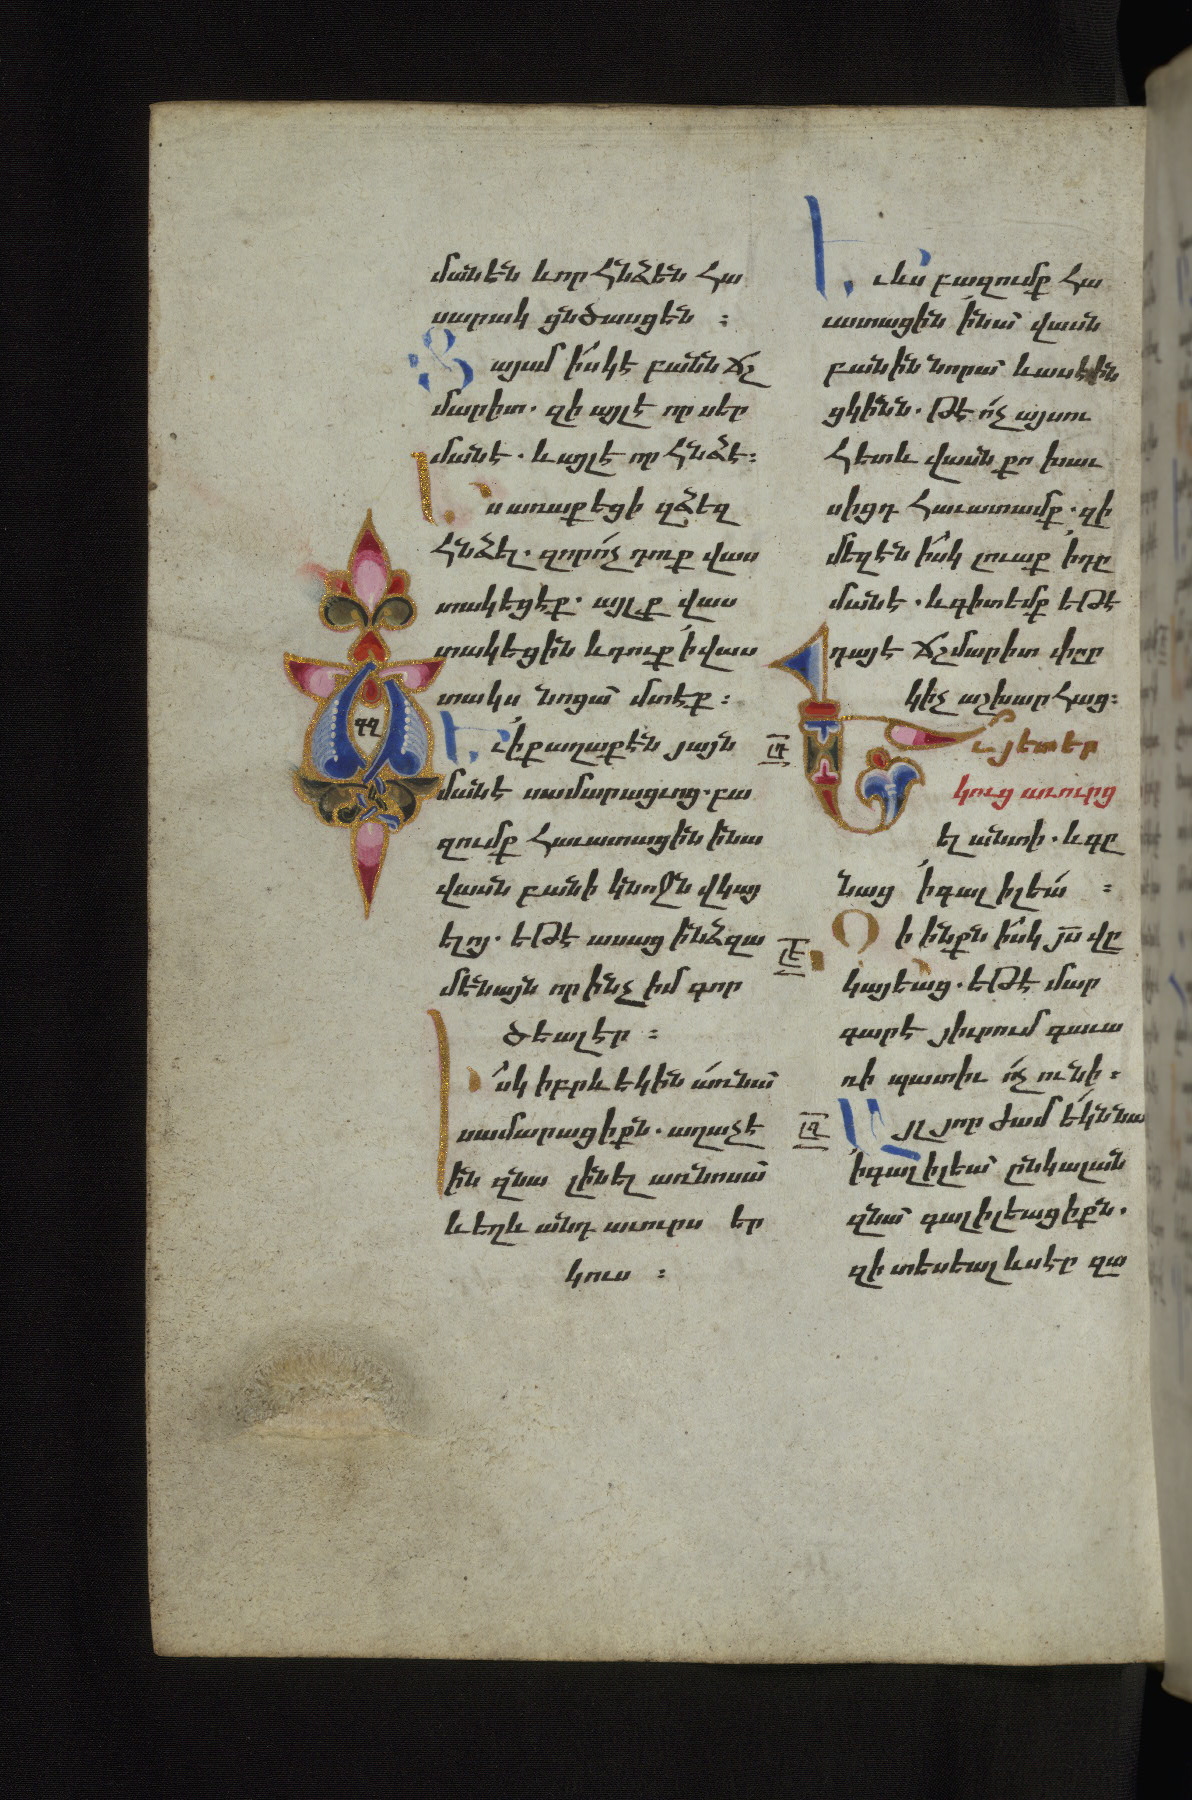 մանէն և որ հնձեն հա
սարակ ցնծասցեն ։
Յայսմ իսկ է բանն ճշ
մարիտ. զի այլ է որ սեր
մանէ. և այլ է որ հնձէ։
Ես առաքեցի զձեզ
հնձել. զոր ոչ դուք վաս
տակեցէք. այլք վաս
տակեցին և դուք ի վաս
տակս նոցա մտէք ։
ՂԳ
Եւ ի քաղաքէն յայն
մանէ սամարացւոց. բա
զումք հաւատացին ի նա
վասն բանի կնոջն վկայ
ելոյ. եթէ ասաց ինձ զա
մենայն որ ինչ իմ գոր
ծեալ էր ։
Իսկ իբրև եկին առ նա
սամարացիքն. աղաչէ
ին զնա լինել առ նոսա
և եղև անդ աւուրս եր
կուս ։
Եւ ևս բազումք հա
ւատացին ի նա վասն
բանին նորա և ասէին
ցկինն. թէ ոչ այսու
հետև վասն քո խաւ
սիցդ հաւատամք. զի
մեզէն իսկ լուաք ի դը
մանէ. և գիտեմք եթէ
դա է ճշմարիտ փըր
կիչ աշխարհաց։
ԼԴ
Եւ յետ եր
կուց աւուրց
ել անտի. և գը
նաց ի գալիլեա ։
ԼԵ
Զի ինքն իսկ յս վը
կայեաց. եթէ մար
գարէ յիւրում գաւա
ռի պատիւ ոչ ունի ։
ԼԶ
Այլ յորժամ եկն նա
ի գալիլեա ընկալան
զնա գալիլեացիքն.
զի տեսեալ ևս էր զա